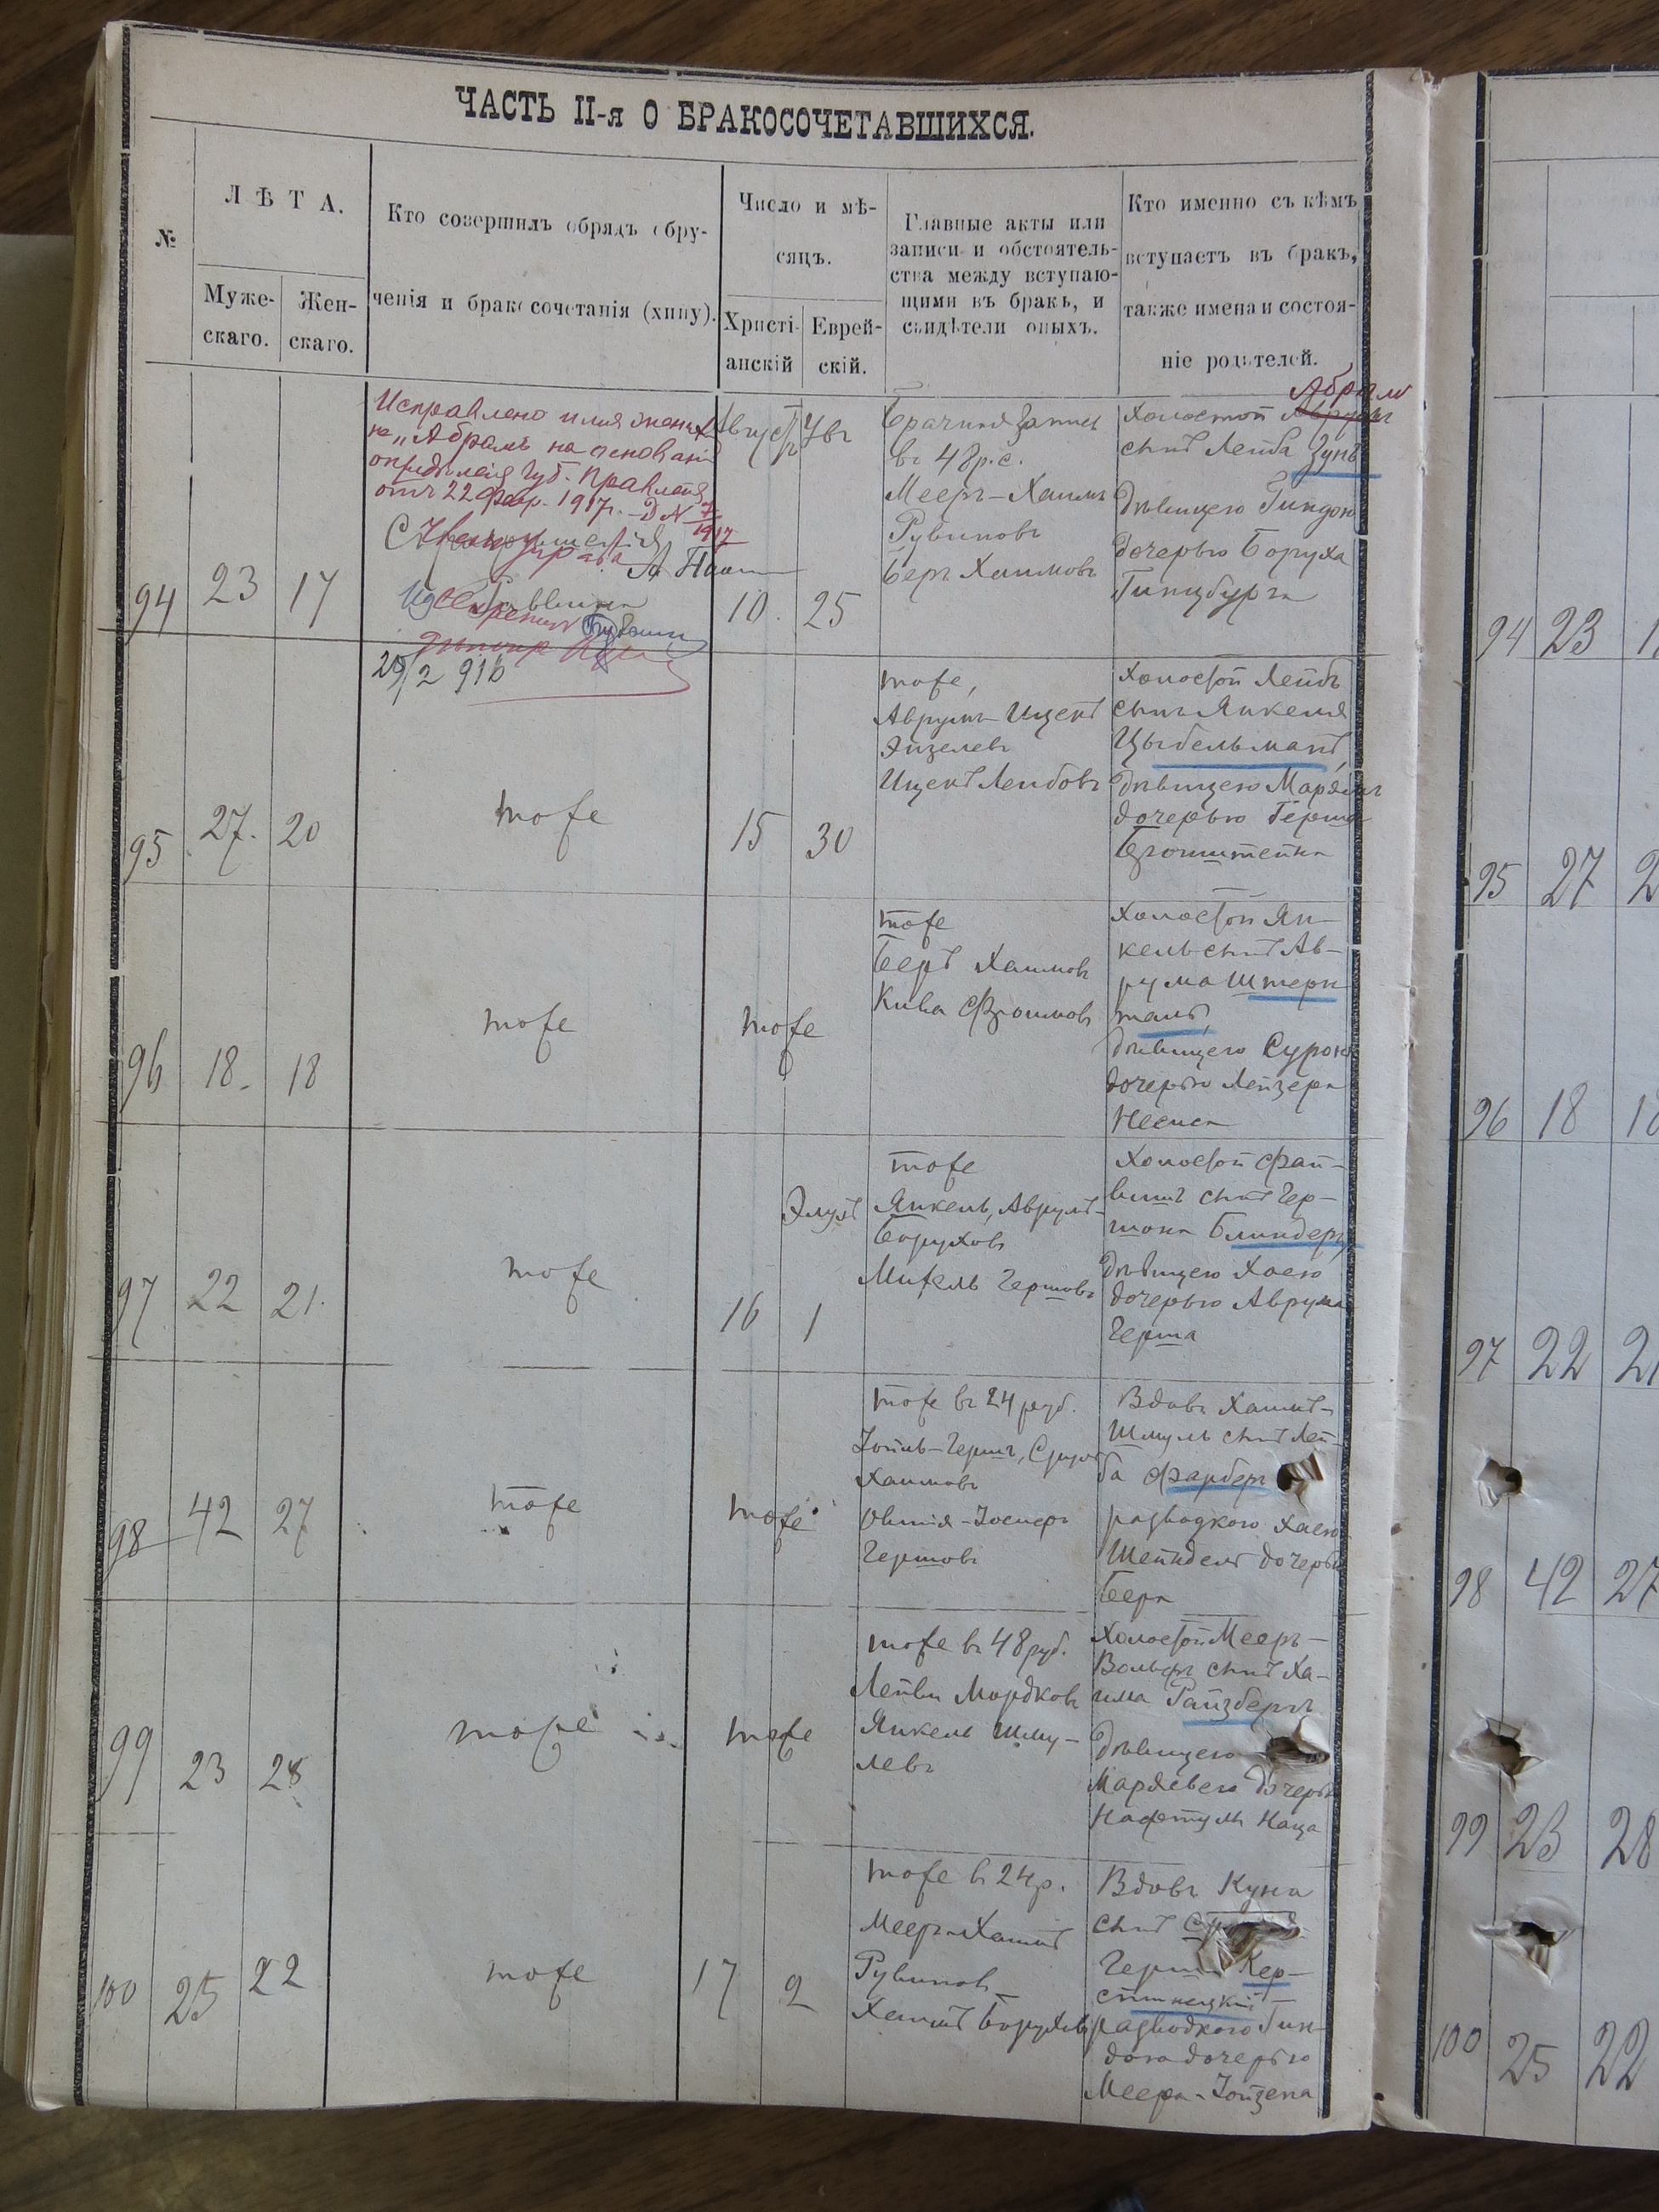 ЧАСТЬ II-я О БРАКОСОЧЕТАВШИХСЯ.
№
ЛѢТА.
Муже-
скаго.
Жен-
скаго.
Кто совершилъ обрядъ обру-
ченія и бракосочетанія (хипу).
Число и мѣ-
сяцъ.
Христі-
анскій
Еврей-
скій.
Главные акты или
записи и обстоятель-
ства между вступаю-
щими въ бракъ, и
свидѣтели оныхъ.
Кто именно съ кѣмъ
вступаетъ въ бракъ,
также имена и состоя-
ніе родителей.
94
23
17
Исправлено имя жениха
на „Абрамъ на основаніи
опредѣленія Губ. Правленія
отъ 22 Февр. 1917г. Д №
1917
29/2 916
Августъ
10.
25
Брачная запись
въ 48 р. с.
Мееръ-Хаимъ
Рувиновъ
Беръ Хаимовъ
Абрамъ
Холостой Аврумъ
сынъ Лейба Зунъ
дѣвицею Гиндою
дочерью Боруха
Гинцбурга
95
27.
20
тоже
15
30
тоже,
Аврумъ-Ицекъ
Айзелевъ
Ицекъ Лейбовъ
Холостой Лейбъ
сынъ Янкеля
Цыбельманъ,
дѣвицею
дочерью Герша
Бронштейна
96
18.
18
тоже
тоже
тоже
Беръ Хаимовъ
Кива Фроимовъ
Холостой Ян-
кель сынъ Ав-
рума Штерн-
дѣвицею Сурою
дочерью Лейзера
97
22
21.
тоже
Элулъ
16
1
тоже
Янкель, Аврумъ-
Боруховъ
Михель Гершовъ
Холостой Фай-
вишъ сынъ Гер-
шона Блиндеръ,
дѣвицею Хаею
дочерью Аврума
Герша
98
42
27
тоже
тоже
тоже въ 24 руб.
Іойнъ-Гершъ, Сруль
Хаимовъ
Гершовъ
Вдовъ Хаимъ-
Шмуль сынъ Лей-
ба Фарберъ
разводкою Хаею
Шейндель дочерью
Бера
99
23
28
тоже
тоже
тоже въ 48 руб.
Лейви Мордковъ
Янкель Шму-
левъ
Холостой Мееръ-
Вольфъ сынъ Ха-
има Гайзберъ
дѣвицею
дочерью
Нафтулы Каца
100
25
22
тоже
17
2
тоже въ 24 р.
Мееръ-Хаимъ
Рувиновъ
Хаимъ Боруховъ
Вдовъ Куна
сынъ
Герша Кер-
разводкою Гин-
дою дочерью
Меера-
94 23
95 27 2
96 18 18
97 22 21
98 42 27
99 23 28
100 25 22